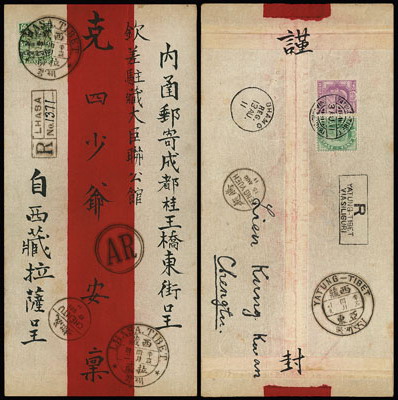 內函郵寄成都桂王橋東街呈
欽差駐藏大臣聯公館
克四少爺安稟
自西藏拉薩呈
LHASA TIBET
西藏
拉
R
LHASA
No. 1371
AR
LHASA TIBET
西藏
拉
謹
封
R
YATUNG-TIBET
VIA SILIGURI
YATUNG-TIBET
西藏
亞東
Lien Kung Kwan
Chengtu.